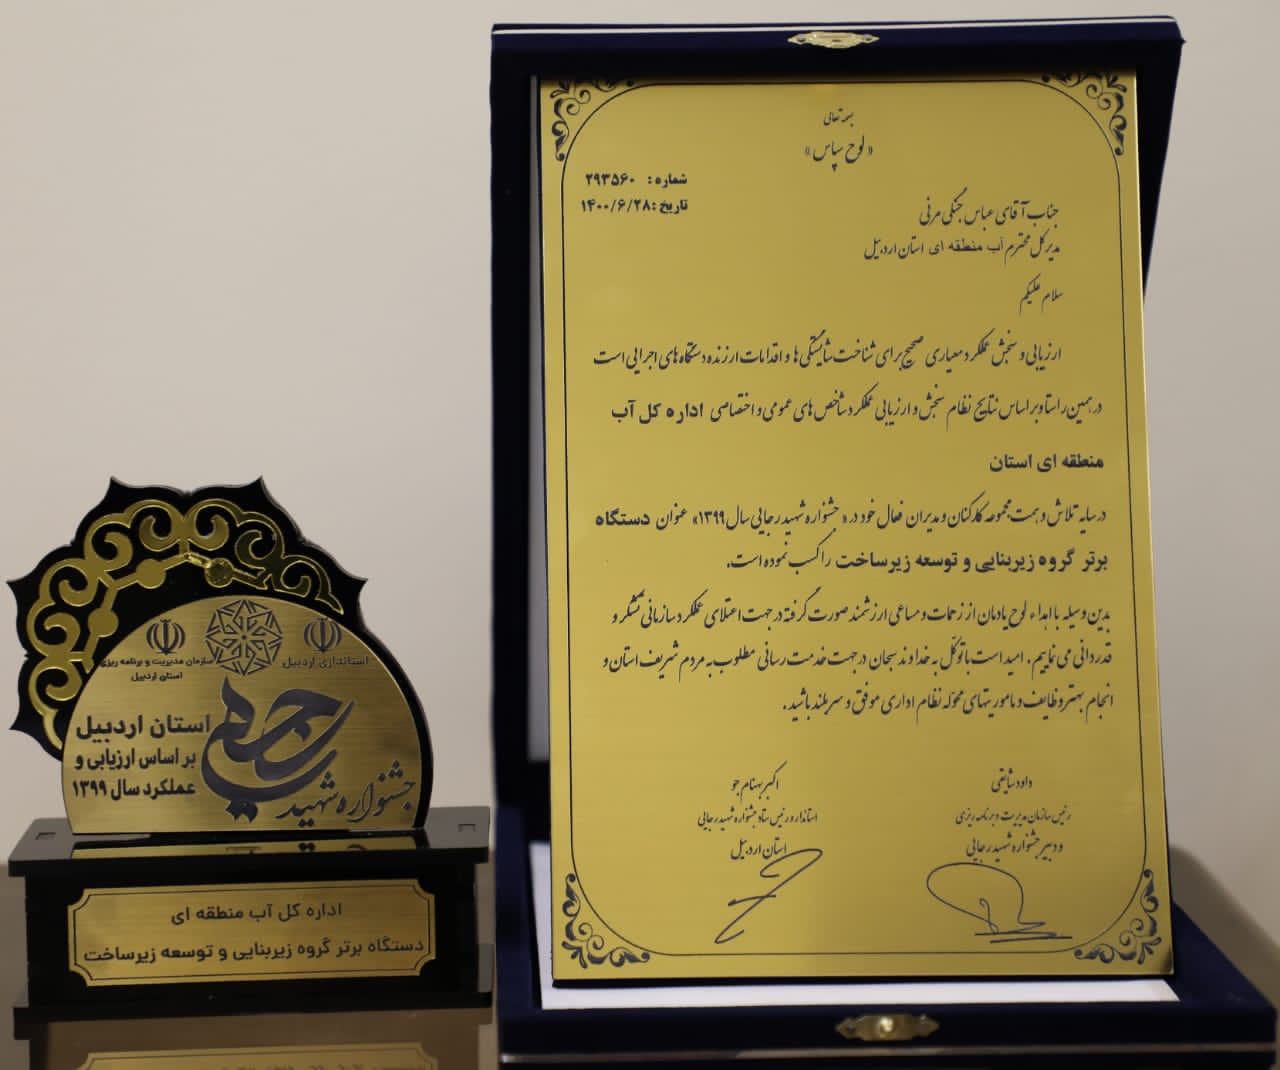 بسمه تعالی
«لوح سپاس»
شماره: ۲۹۳۵۶۰
تاریخ: ۱۴۰۰/۶/۲۸
جناب آقای عباس جنگی مرنی
مدیرکل محترم آب منطقه ای استان اردبیل
سلام علیکم
ارزیابی و سنجش عملکرد معیاری صحیح برای شناخت شایستگی ها و اقدامات ارزنده دستگاه های اجرایی است
در همین راستا و بر اساس نتایج نظام سنجش و ارزیابی عملکرد شاخص های عمومی و اختصاصی اداره کل آب
منطقه ای استان
در سایه تلاش و همت مجموعه کارکنان و مدیران فعال خود در «جشنواره شهید رجایی سال ۱۳۹۹» عنوان دستگاه
برتر گروه زیربنایی و توسعه زیرساخت را کسب نموده است.
بدین وسیله با اهداء لوح یادمان از زحمات و مساعی ارزشمند صورت گرفته در جهت اعتلای عملکرد سازمانی تشکر و
قدردانی می نماییم. امید است با توکل به خداوند سبحان در جهت خدمت رسانی مطلوب به مردم شریف استان و
انجام بهتر وظایف و ماموریتهای محوله نظام اداری موفق و سربلند باشید.
داود شایقی
رئیس سازمان مدیریت و برنامه ریزی
و دبیر جشنواره شهید رجایی
اکبر بهنام جو
استاندار و رئیس ستاد جشنواره شهید رجایی
استان اردبیل
استانداری اردبیل
سازمان مدیریت و برنامه ریزی
استان اردبیل
جشنواره شهید رجایی
استان اردبیل
بر اساس ارزیابی و
عملکرد سال ۱۳۹۹
اداره کل آب منطقه ای
دستگاه برتر گروه زیربنایی و توسعه زیرساخت